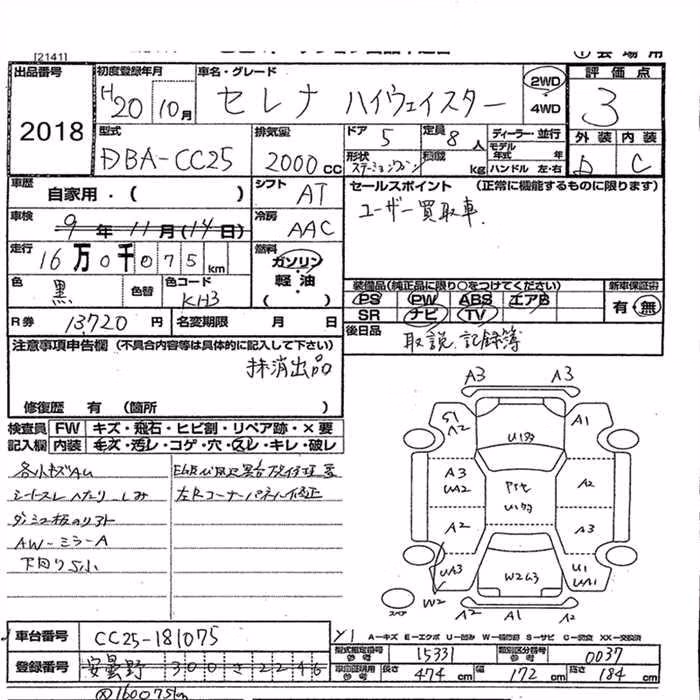 [2141]
出品番号 初度登録年月 車名・グレード 2WD 評価点
2018 H20 10月 セレナ ハイウェイスター 4WD 3
型式 排気量 ドア 定員 ディーラー・並行 外装 内装
DBA-CC25 2000cc 5 8人 モデル年式 年 D C
形状 ステーションワゴン 積載 kg ハンドル 左・右
車歴 自家用・( ) シフト AT セールスポイント (正常に機能するものに限ります)
車検 9年11月(14日) 冷房 AAC ユーザー買取車.
走行 16万0千075km 燃料 ガソリン・軽油 ( )
色 黒 色替 色コード KH3
装備品(純正品に限り○をつけてください) 新車保証書
PS PW ABS エアB 有・無
SR ナビ TV
R券 13,720円 名変期限 月 日 後日品 取説 記録簿
注意事項申告欄 (不具合内容等は具体的に記入して下さい)
抹消出品
修復歴 有 (箇所 )
検査員記入欄 FW キズ・飛石・ヒビ割・リペア跡・×要
内装 モズ・汚レ・コゲ・穴・スレ・キレ・破レ
各小キズAU
シートスレ ヘタリ シミ
左Rコーナーパネル修正
AW-ミラーA
下回りS小
A3 A3
S1 A2 U1 A1
A3 UA2 A2
A2 A3
UA3 U1 UA1
W2 W2 A2 A1 A2
スペア
車台番号 CC25-181075
登録番号 安曇野 300 さ 2246
Y1 A-キズ E-エクボ U-凹み S-サビ C-腐食 XX-交換済
型式指定番号 参考 15331 類別区分番号 参考 0037
長さ 474cm 幅 172cm 高さ 184cm
160075km